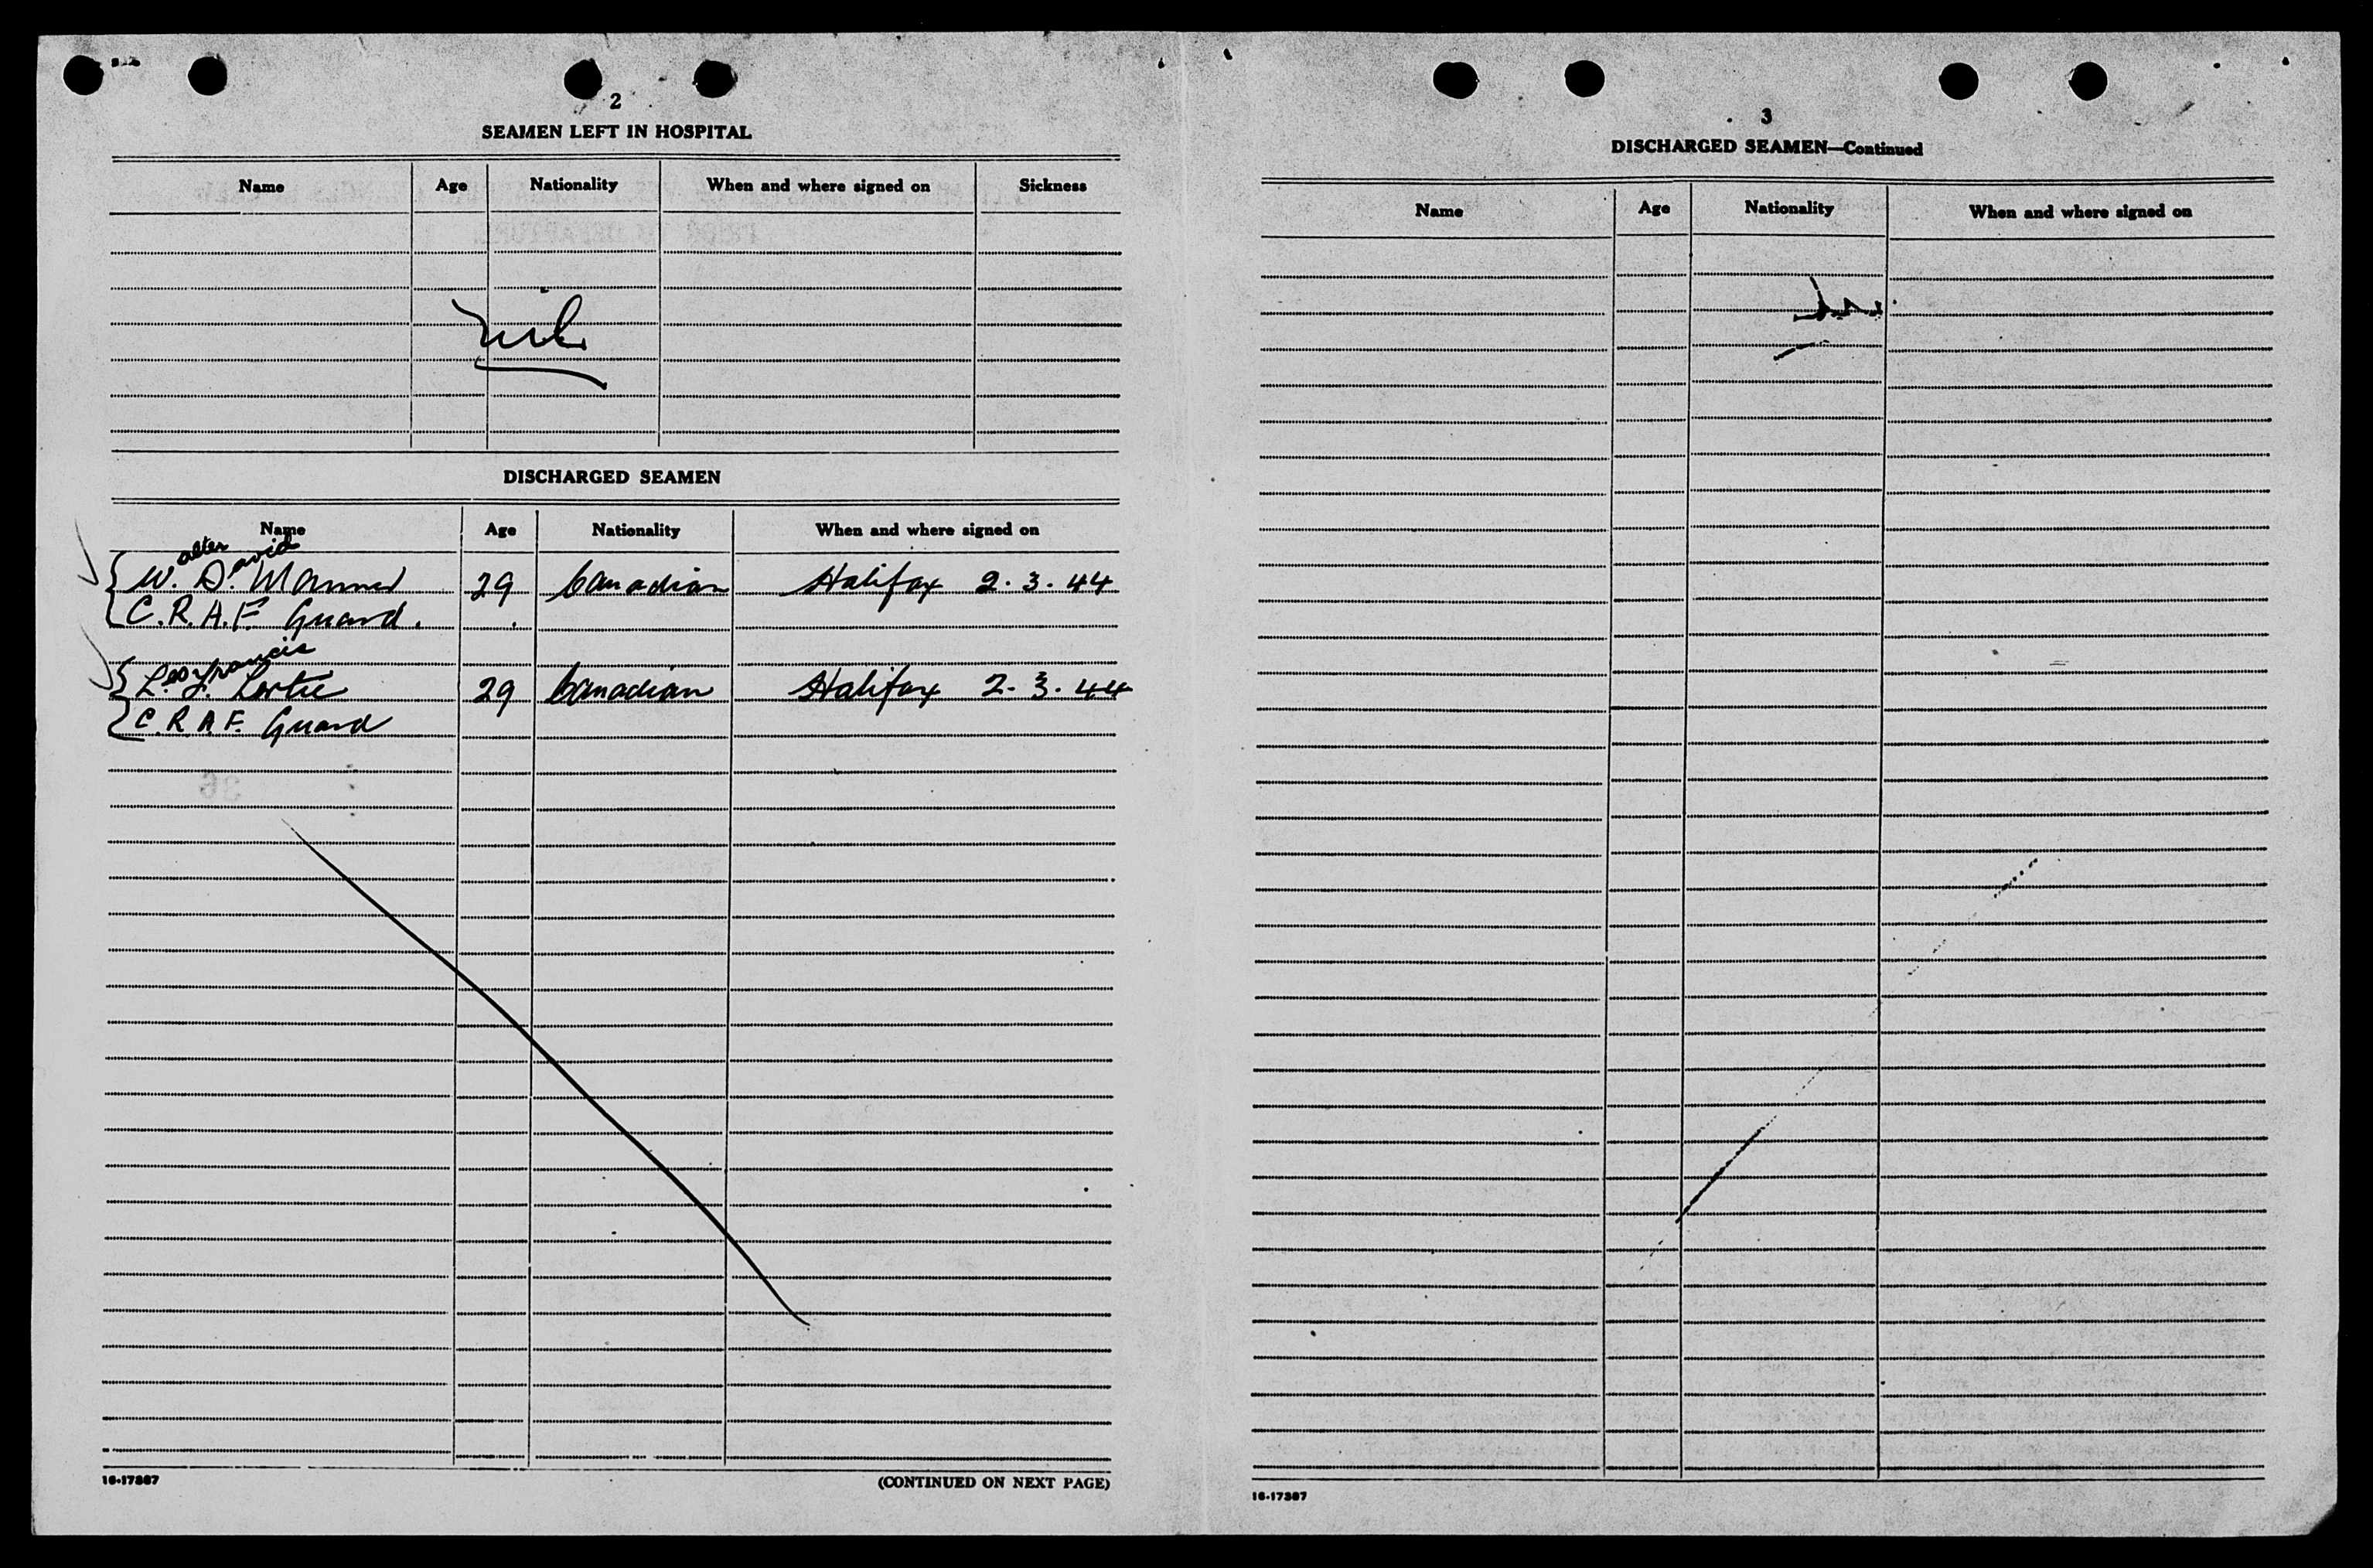 2
SEAMEN LEFT IN HOSPITAL
Name Age Nationality When and where signed on Sickness
nil
DISCHARGED SEAMEN
Name Age Nationality When and where signed on
alter avid
W. D. 29 Canadian Halifax 2.3.44
C.R.A.F. Guard.
eo Francis
L. F. Lortie 29 Canadian Halifax 2.3.44
C.R.A.F. Guard
36
16-17387 (CONTINUED ON NEXT PAGE)
3
DISCHARGED SEAMEN—Continued
Name Age Nationality When and where signed on
16-17387